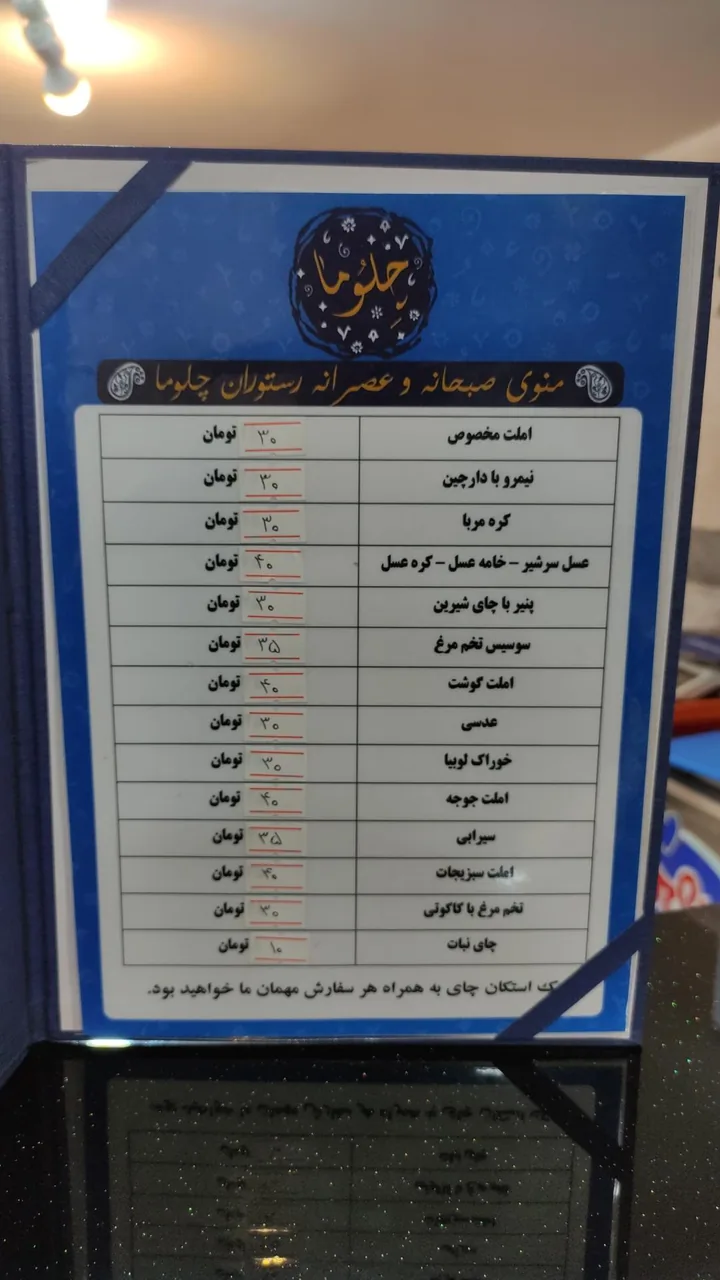 چلوما
منوی صبحانه و عصرانه رستوران چلوما
املت مخصوص ۳۰ تومان
نیمرو با دارچین ۳۰ تومان
کره مربا ۳۰ تومان
عسل سرشیر – خامه عسل – کره عسل ۴۰ تومان
پنیر با چای شیرین ۳۰ تومان
سوسیس تخم مرغ ۳۵ تومان
املت گوشت ۴۰ تومان
عدسی ۳۰ تومان
خوراک لوبیا ۳۰ تومان
املت جوجه ۴۰ تومان
سیرابی ۳۵ تومان
املت سبزیجات ۴۰ تومان
تخم مرغ با کاکوتی ۳۰ تومان
چای نبات ۱۰ تومان
یک استکان چای به همراه هر سفارش مهمان ما خواهید بود.